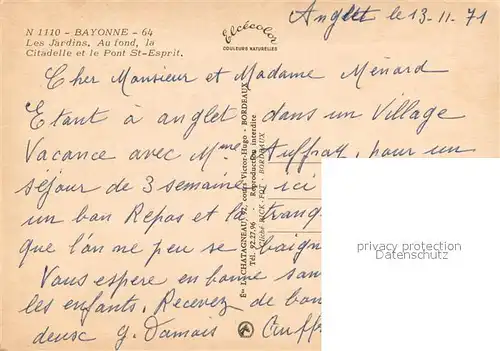 N 1110 - BAYONNE - 64
Les Jardins. Au fond, la
Citadelle et le Pont St-Esprit.
Elcécolor
COULEURS NATURELLES
Anglet le 13-11-71
Cher Monsieur et Madame Ménard
Etant à anglet dans un Village
Vacance avec Mme Auffray, pour un
séjour de 3 semaine, ici
un bon Repos et la trang
que l'on ne peu se baign
Vous espere en bonne san
les enfants. Recevez de bon
deux G. Damais
Éts LACHATAGNEAU, 92, cours Victor-Hugo - BORDEAUX
Tél. 92.27.96 - Reproduction interdite
privacy protection
Datenschutz